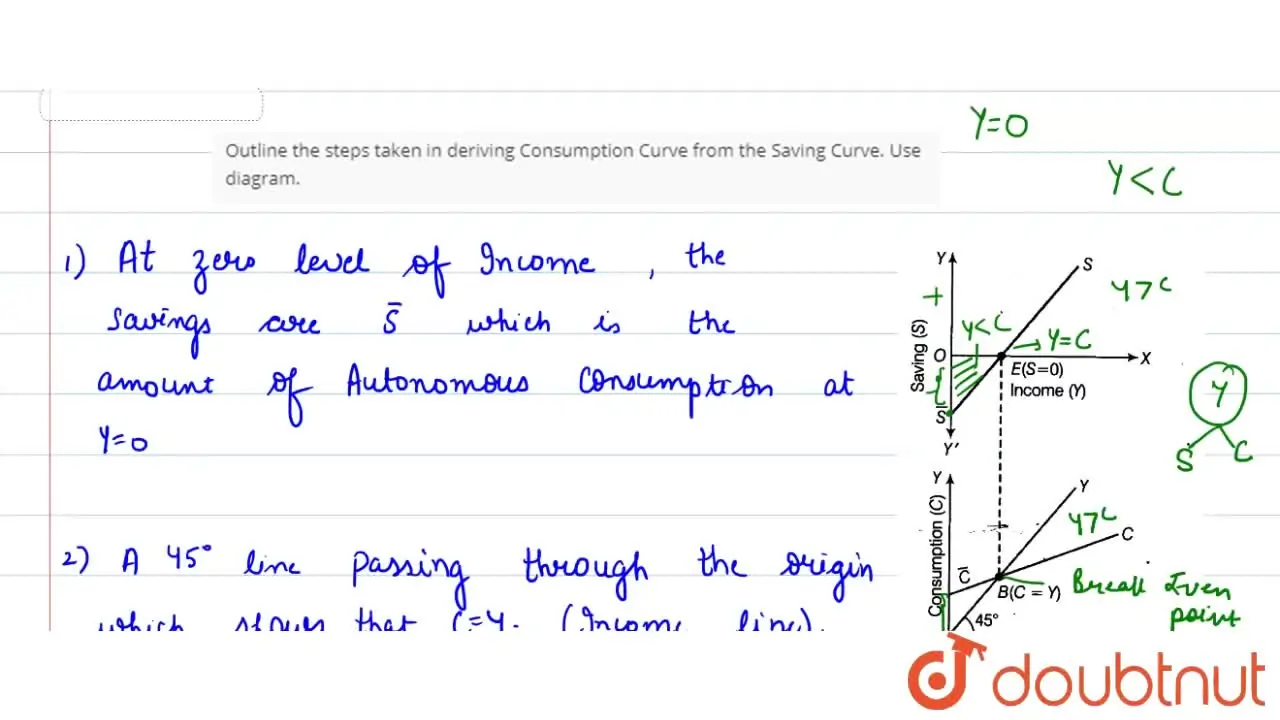 Y=0
Outline the steps taken in deriving Consumption Curve from the Saving Curve. Use
diagram.
Y<C
1) At zero level of Income, the
savings are S̄ which is the
amount of Autonomous Consumption at
Y=0
2) A 45° line passing through the origin
which shows that C=Y. (Income line).
Y
S
+
Y>C
Y<C
→ Y=C
Saving (S)
O
X
E(S=0)
Income (Y)
S̄
Y'
Y
S C
Y
Y
Y>C
C
Consumption (C)
C̄
B(C = Y)
Break Even
point
45°
doubtnut